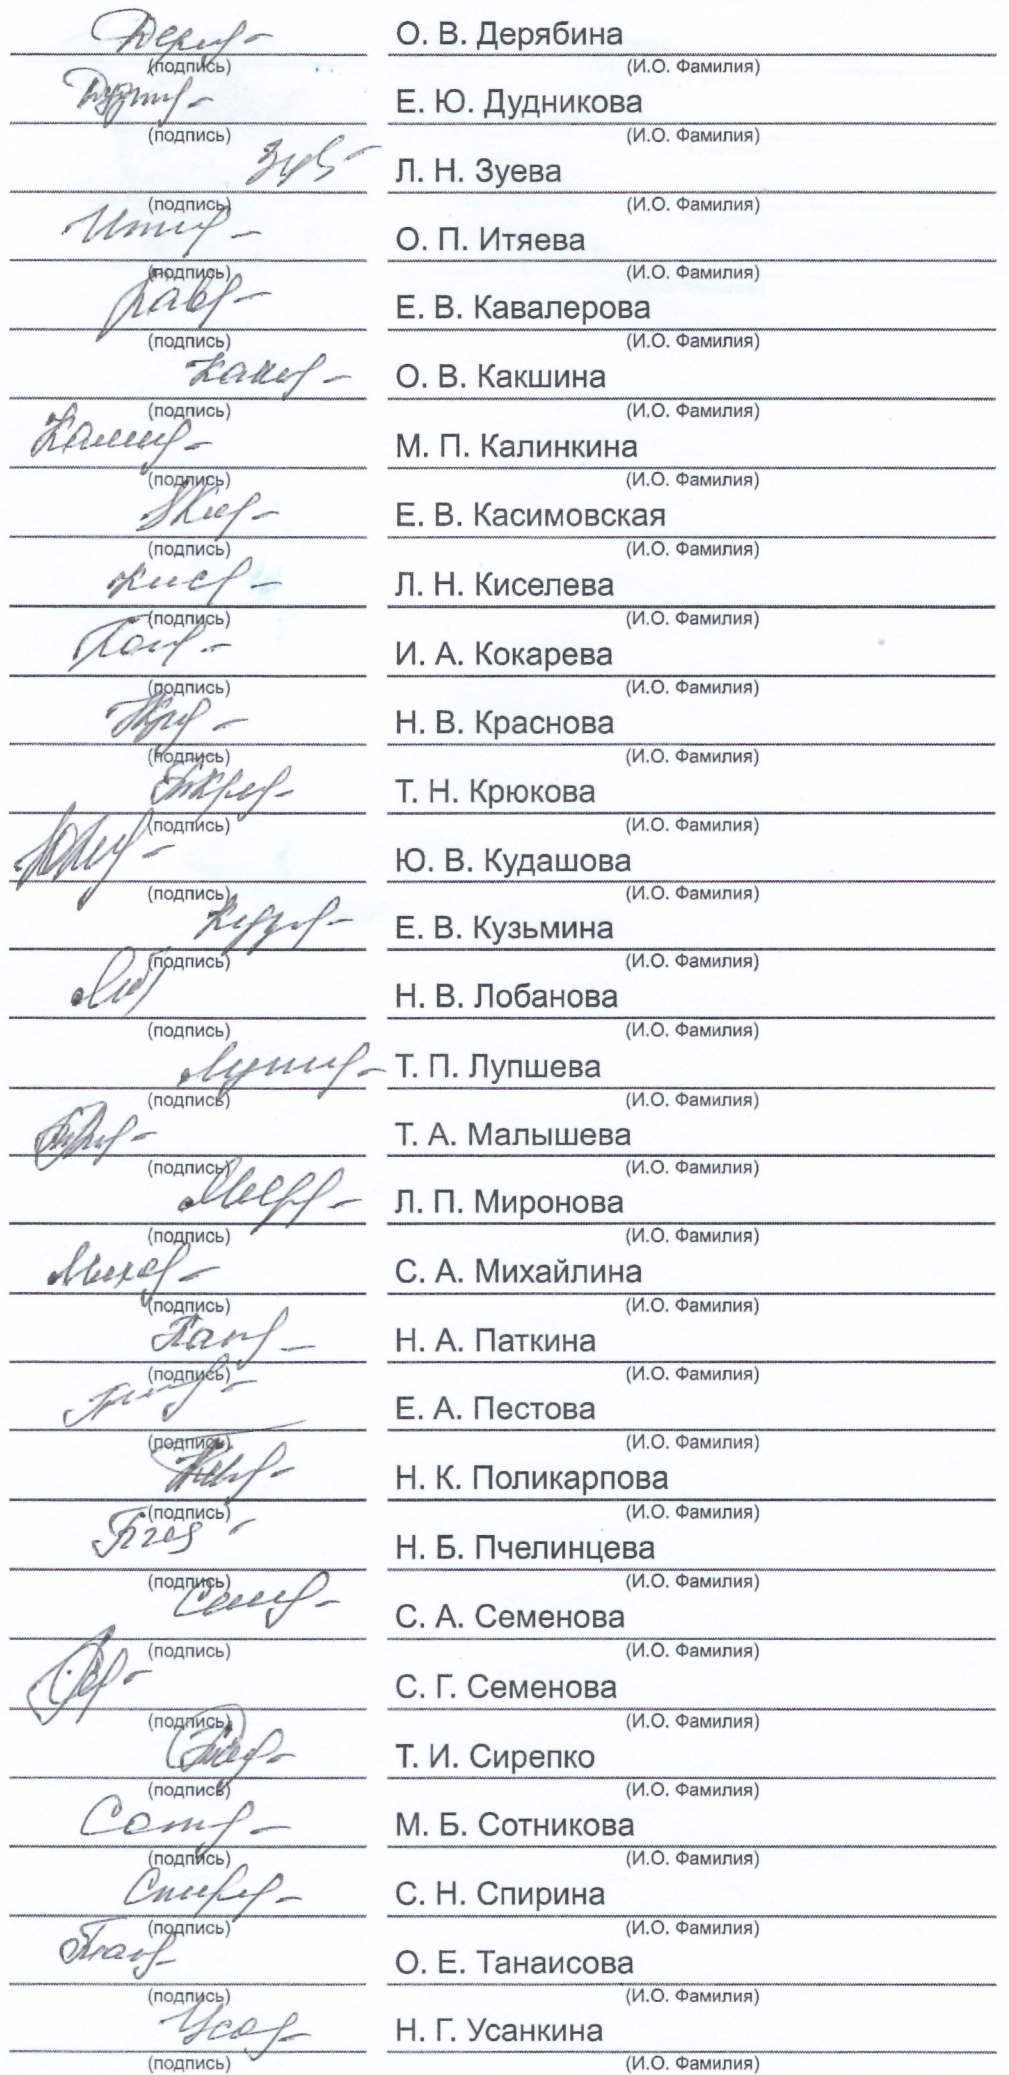 О. В. Дерябина
(подпись) (И.О. Фамилия)
Е. Ю. Дудникова
(подпись) (И.О. Фамилия)
Л. Н. Зуева
(подпись) (И.О. Фамилия)
О. П. Итяева
(подпись) (И.О. Фамилия)
Е. В. Кавалерова
(подпись) (И.О. Фамилия)
О. В. Какшина
(подпись) (И.О. Фамилия)
М. П. Калинкина
(подпись) (И.О. Фамилия)
Е. В. Касимовская
(подпись) (И.О. Фамилия)
Л. Н. Киселева
(подпись) (И.О. Фамилия)
И. А. Кокарева
(подпись) (И.О. Фамилия)
Н. В. Краснова
(подпись) (И.О. Фамилия)
Т. Н. Крюкова
(подпись) (И.О. Фамилия)
Ю. В. Кудашова
(подпись) (И.О. Фамилия)
Е. В. Кузьмина
(подпись) (И.О. Фамилия)
Н. В. Лобанова
(подпись) (И.О. Фамилия)
Т. П. Лупшева
(подпись) (И.О. Фамилия)
Т. А. Малышева
(подпись) (И.О. Фамилия)
Л. П. Миронова
(подпись) (И.О. Фамилия)
С. А. Михайлина
(подпись) (И.О. Фамилия)
Н. А. Паткина
(подпись) (И.О. Фамилия)
Е. А. Пестова
(подпись) (И.О. Фамилия)
Н. К. Поликарпова
(подпись) (И.О. Фамилия)
Н. Б. Пчелинцева
(подпись) (И.О. Фамилия)
С. А. Семенова
(подпись) (И.О. Фамилия)
С. Г. Семенова
(подпись) (И.О. Фамилия)
Т. И. Сирепко
(подпись) (И.О. Фамилия)
М. Б. Сотникова
(подпись) (И.О. Фамилия)
С. Н. Спирина
(подпись) (И.О. Фамилия)
О. Е. Танаисова
(подпись) (И.О. Фамилия)
Н. Г. Усанкина
(подпись) (И.О. Фамилия)